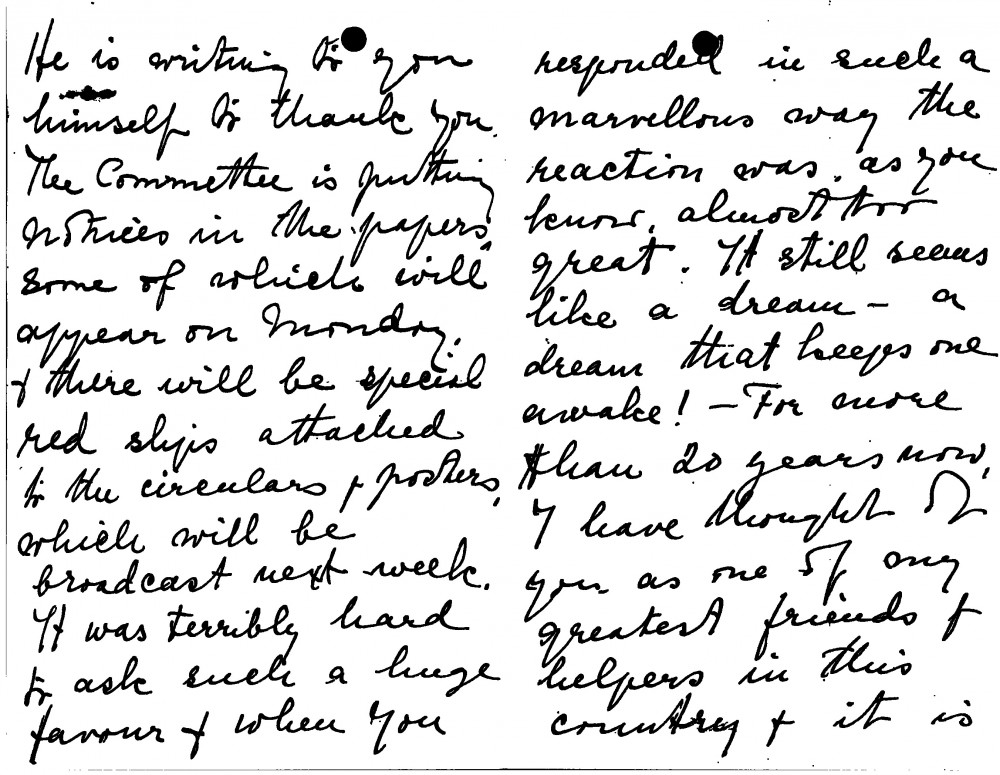 He is writing to you
himself to thank you.
The Committee is putting
notices in the papers,
some of which will
appear on Monday,
& there will be special
red slips attached
to the circulars & posters,
which will be
broadcast next week.
It was terribly hard
to ask such a huge
favour & when you
responded in such a
marvellous way the
reaction was, as you
know, almost too
great. It still seems
like a dream - a
dream that keeps one
awake! - For more
than 20 years now,
I have thought of
you as one of my
greatest friends &
helpers in this
country & it is